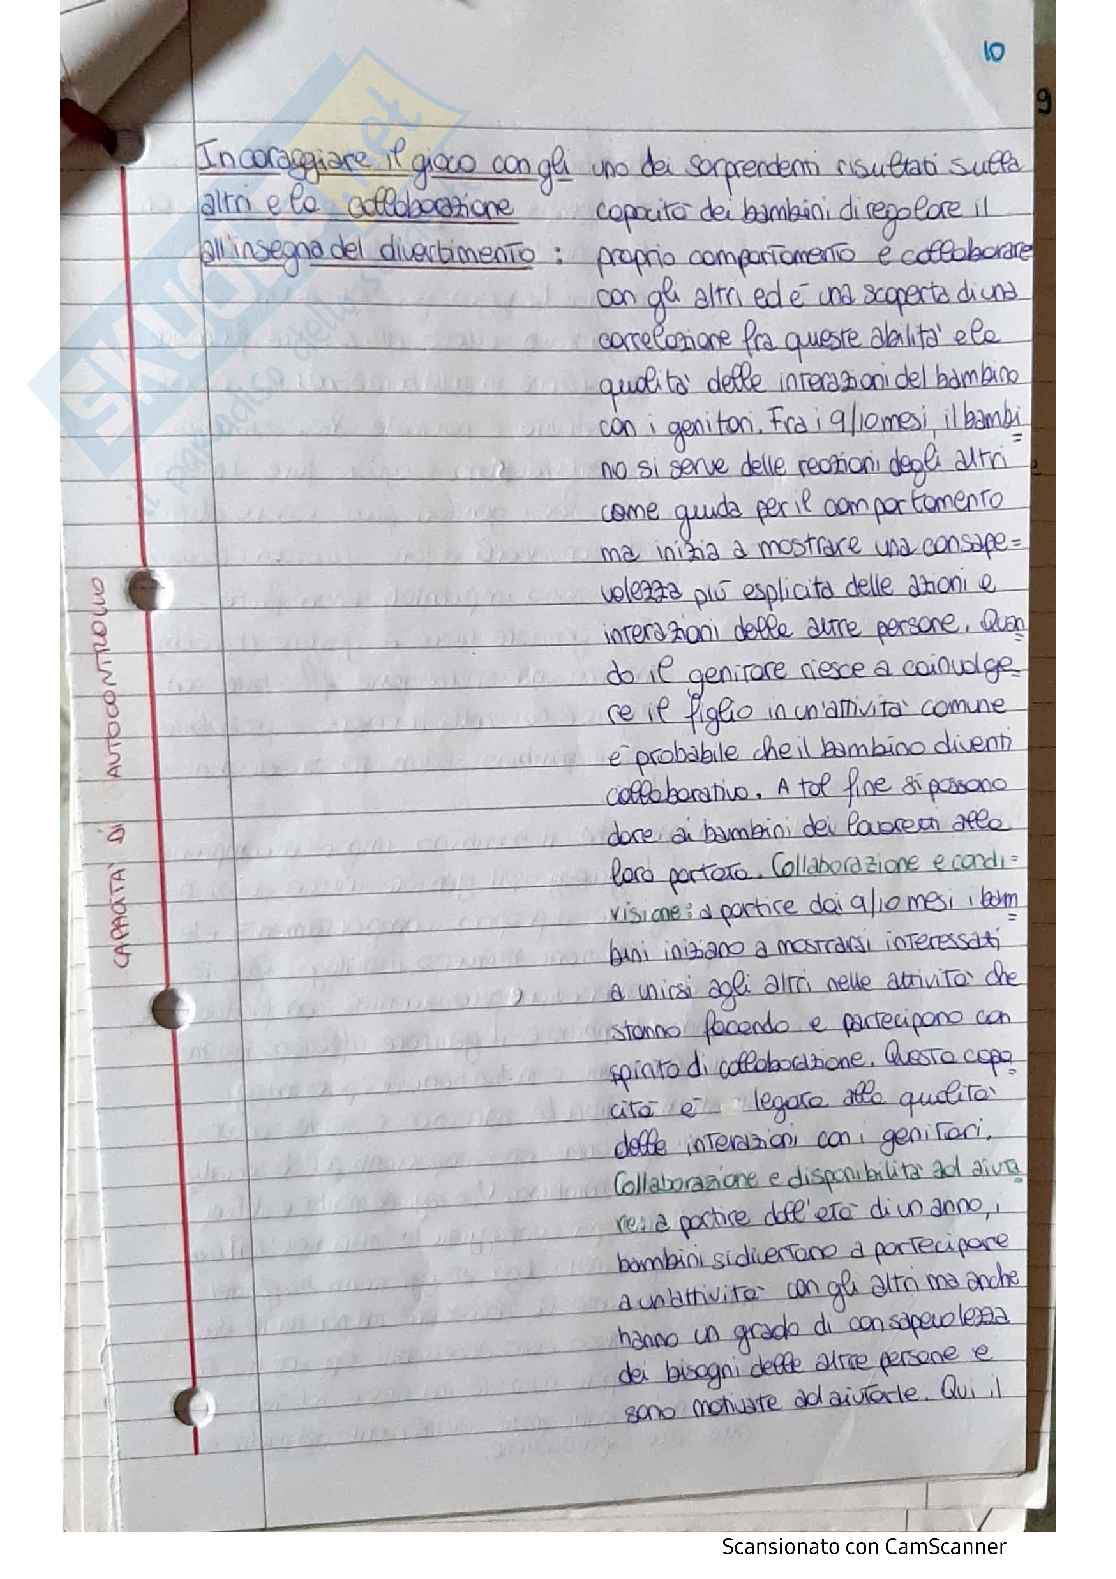 10
9
Incoraggiare il gioco con gli
altri e la collaborazione
all'insegna del divertimento :
uno dei sorprendenti risultati sulla
capacità dei bambini di regolare il
proprio comportamento e collaborare
con gli altri ed è una scoperta di una
correlazione fra queste abilità e la
qualità delle interazioni del bambino
con i genitori. Fra i 9/10 mesi, il bambi
no si serve delle reazioni degli altri
come guida per il comportamento
ma inizia a mostrare una consape=
volezza più esplicita delle azioni e
interazioni delle altre persone. Quan
do il genitore riesce a coinvolge
re il figlio in un'attività comune
è probabile che il bambino diventi
collaborativo. A tal fine si possono
dare ai bambini dei lavoretti alla
loro portata. Collaborazione e condi=
visione: a partire dai 9/10 mesi i bam
bini iniziano a mostrarsi interessati
a unirsi agli altri nelle attività che
stanno facendo e partecipano con
spirito di collaborazione. Questa capa
cità è legata alla qualità
delle interazioni con i genitori.
Collaborazione e disponibilità ad aiuta
re: a partire dall'età di un anno, i
bambini si divertano a partecipare
a un'attività con gli altri ma anche
hanno un grado di consapevolezza
dei bisogni delle altre persone e
sono motivate ad aiutarle. Qui il
CAPACITA' DI AUTOCONTROLLO
SKUOLA.net
il paradiso dello
Scansionato con CamScanner